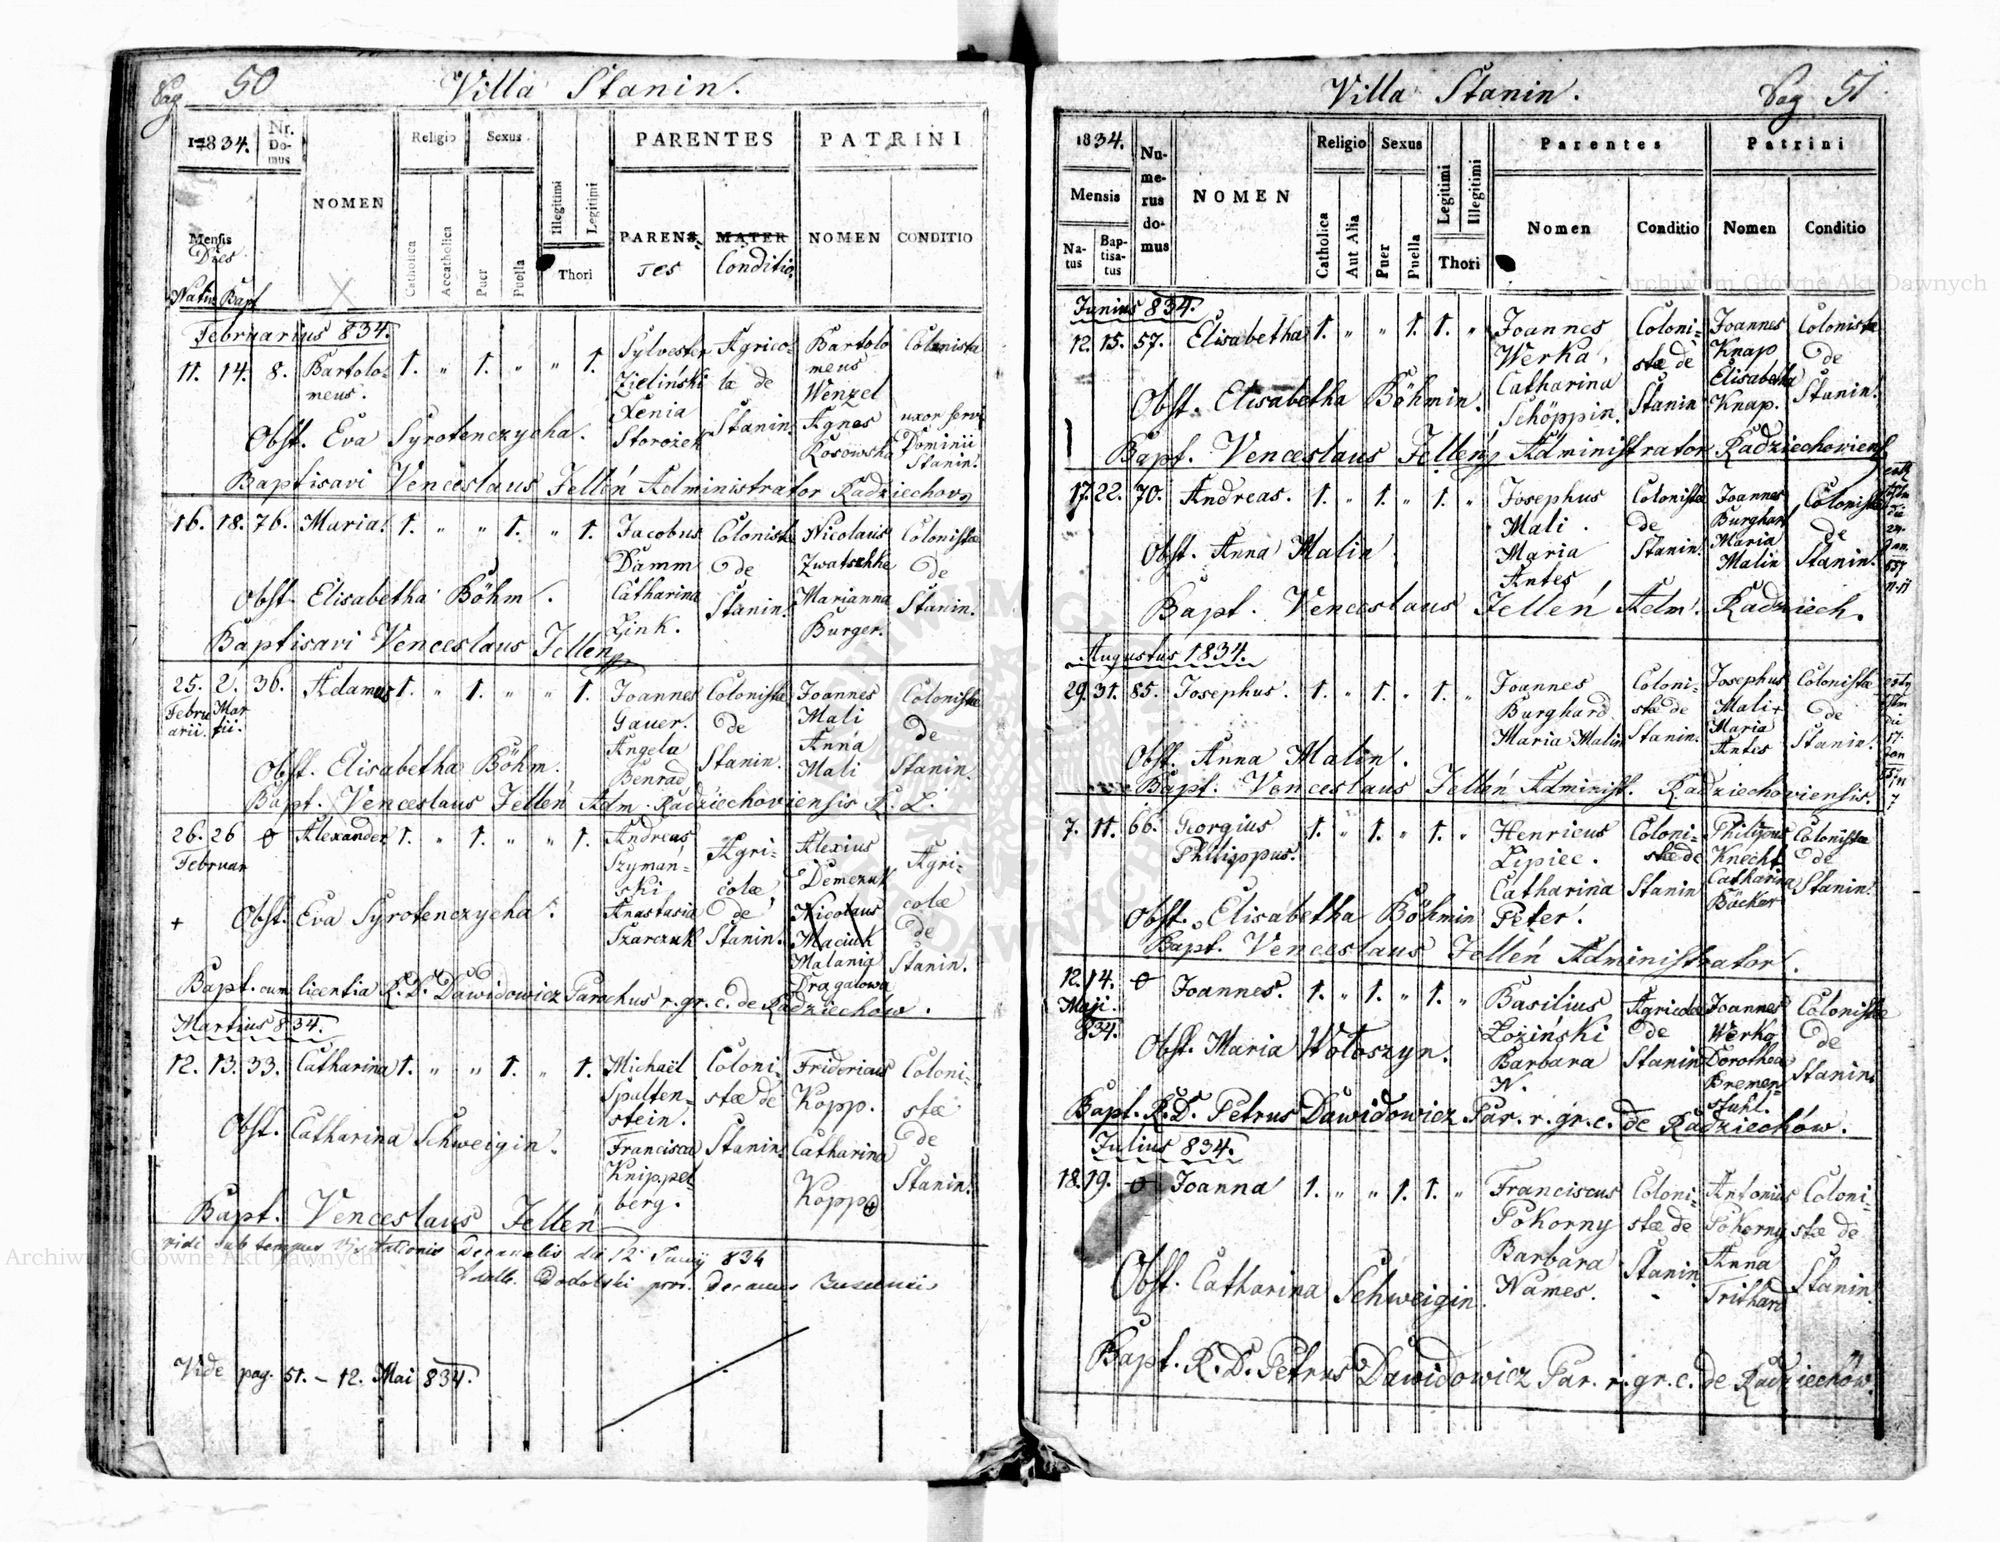 Pag 50 Villa Stanin.
1834. Nr. Do- mus
NOMEN
Religio Sexus
Catholica Accatholica Puer Puella
Illegitimi Legitimi
Thori
PARENTES PATRINI
PARENTES MATER NOMEN CONDITIO
Conditio
Mensis
Dies
Natus Bapt
Februarius 834.
11. 14. 8. Bartolo- 1. " 1. " " 1. Sylvester Agrico- Bartolo Colonista
meus. Zieliński læ de meus
Xenia Stanin. Wenzel
Storożek Agnes uxor servi
Kosowska Dominii
Stanin.
Obst. Eva Syrotenczycha.
Baptisavi Venceslaus Jellen Administrator Radziechov
16. 18. 76. Maria. 1. " " 1. " 1. Jacobus Colonistæ Nicolaus Colonistæ
Damm de Zwatschke de
Catharina Stanin. Marianna Stanin.
Zink. Burger.
Obst. Elisabetha Böhm.
Baptisavi Venceslaus Jellen
25. 2. 36. Adamus 1. " 1. " " 1. Joannes Colonistæ Joannes Colonistæ
Febru Mar Gauer. de Mali de
arii. tii. Angela Stanin. Anna Stanin.
Benrad Mali
Obst. Elisabetha Böhm.
Bapt. Venceslaus Jellen Adm. Radziechoviensis R. L.
26. 26 0 Alexander 1. " 1. " " 1. Andreas Agri- Alexius Agri-
Februar Szymań- colæ Demczuk colæ
ski de Nicolaus de
Anastasia Stanin. Maciuk Stanin.
Szarczuk Malania
Dragatowa
+ Obst. Eva Syrotenczycha.
Bapt. cum licentia R. D. Dawidowicz Parochus r. gr. c. de Radziechów.
Martius 834.
12. 13. 33. Catharina 1. " " 1. " 1. Michaël Coloni- Fridericus Coloni-
Spulten- stæ de Kopp. stæ
stein. Stanin. Catharina de
Francisca Kopp Stanin.
Knippel-
berg.
Obst. Catharina Schweigin.
Bapt. Venceslaus Jellen
vidi sub tempus Visitationis Decanalis die 12 Junij 834
Decanus
Vide pag. 51. – 12. Mai 834.
Villa Stanin. Pag 51
1834.
Mensis
Na- tus Bap- tisa- tus
Nu- me- rus do- mus
NOMEN
Religio Sexus
Catholica Aut Alia Puer Puella
Legitimi Illegitimi
Thori
Parentes Patrini
Nomen Conditio Nomen Conditio
Junius 834.
12. 15. 57. Elisabetha 1. " " 1. 1. " Joannes Coloni- Joannes Colonistæ
Werka, stæ de Knap de
Catharina Stanin Elisabetha Stanin.
Schöppin. Knap.
Obst. Elisabetha Böhmin.
Bapt. Venceslaus Jelleny Administrator Radziechoviens
17. 22. 70. Andreas. 1. " 1. " 1. " Josephus Colonistæ Joannes Colonistæ
Mali. de Burghart de
Maria Stanin. Maria Stanin.
Antes Malin
Obst. Anna Malin
Bapt. Venceslaus Jellen Adm. Radziech.
Augustus 1834.
29. 31. 85. Josephus. 1. " 1. " 1. " Joannes Coloni- Josephus Colonistæ
Burghard stæ de Mali + de
Maria Malin Stanin. Maria Stanin.
Antes
Obst. Anna Malin.
Bapt. Venceslaus Jellen Administ. Radziechoviensis.
7. 11. 66. Georgius 1. " 1. " 1. " Henricus Coloni- Philippus Colonistæ
Philippus. Lipiec. stæ de Knecht de
Catharina Stanin Catharina Stanin.
Peter. Bücher
Obst. Elisabetha Böhmin
Bapt. Venceslaus Jellen Administrator.
12. 14. 0 Joannes. 1. " 1. " 1. " Basilius Agricolæ Joannes Colonistæ
Maji. Łoziński de Werka de
834. Barbara Stanin Dorothea Stanin
N. Bremen-
stuhl.
Obst. Maria Wołoszyn.
Bapt. R. D. Petrus Dawidowicz Par. r. gr. c. de Radziechów.
Julius 834.
18. 19. 0 Joanna 1. " " 1. 1. " Franciscus Coloni- Antonius Coloni-
Pokorny stæ de Pokorny stæ de
Barbara Stanin Anna Stanin
Names. Trithard
Obst. Catharina Schweigin.
Bapt. R. D. Petrus Dawidowicz Par. r. gr. c. de Radziechów.
Archiwum Główne Akt Dawnych
Archiwum Główne Akt Dawnych